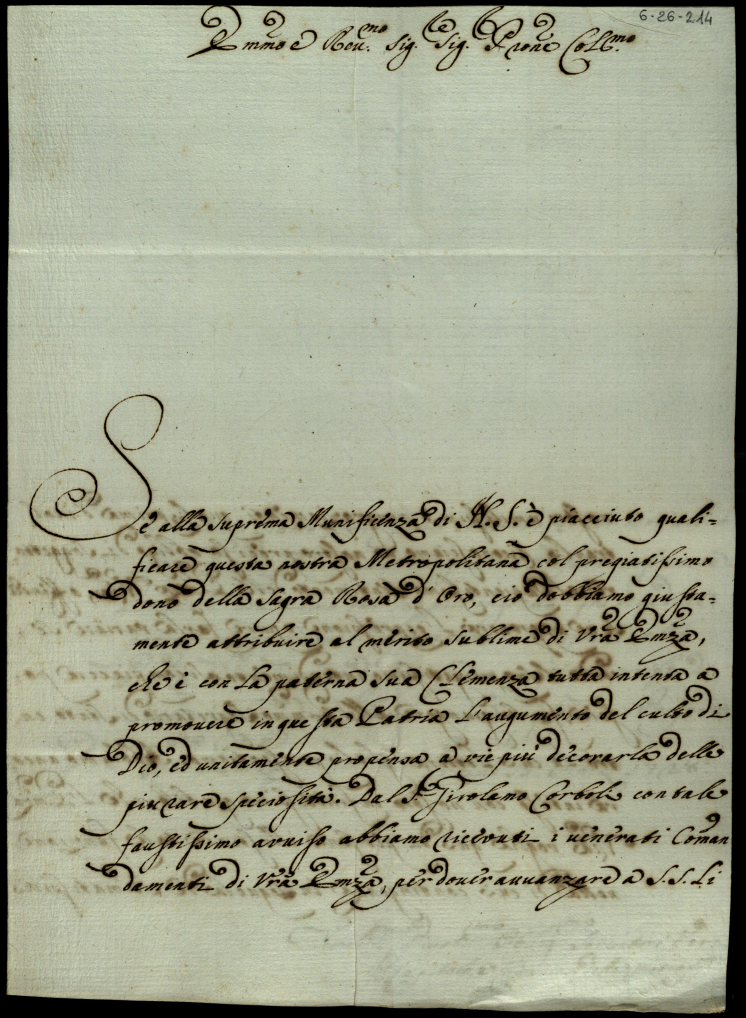 6-26-214
Emm̃o e Reu.mo Sig.re Sig.re P̃rone Coll.mo
Se alla suprema Munificenza di N. S. è piacciuto quali=
ficare questa nostra Metropolitana col pregiatissimo
dono della Sagra Rosa d'Oro, ciò dobbiamo giusta=
mente attribuire al merito sublime di Vrã Emzã,
che è con la paterna sua Clemenza tutta intenta a
promovere in questa Patria l'augumento del culto di
Dio, ed unitamente propensa a vie più decorarla delle
più rare speciosità. Dal S.r Girolamo Corboli con tale
faustissimo avviso abbiamo ricevuti i venerati Coman
damenti di Vrã Emzã, per dover avvanzare a S. S. Li